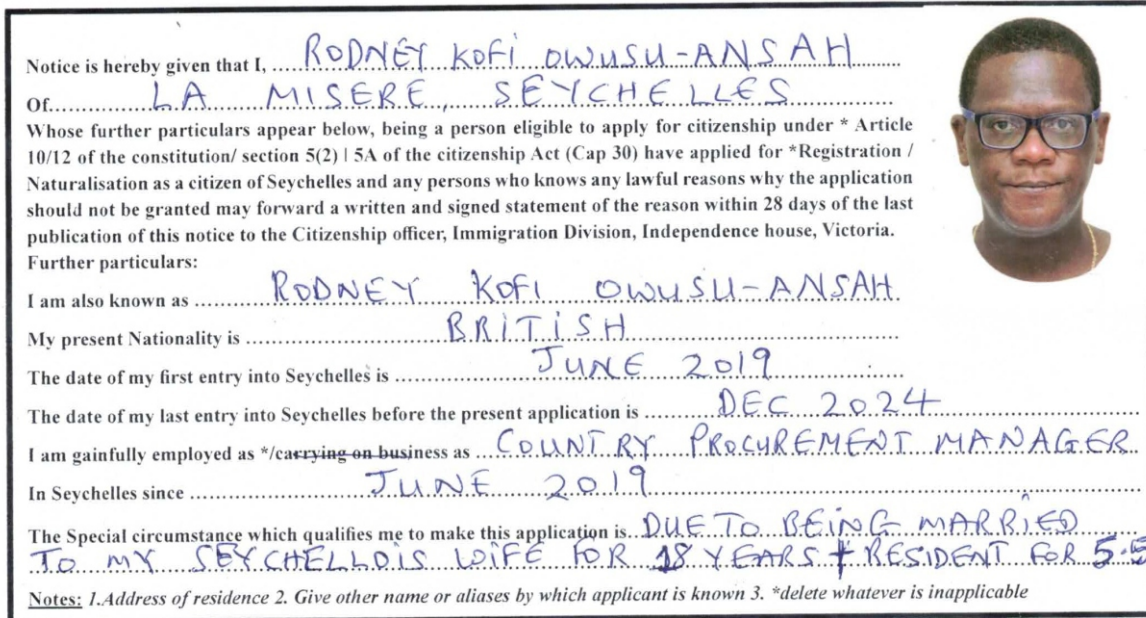 Notice is hereby given that I, RODNEY KOFI OWUSU-ANSAH
Of LA MISERE, SEYCHELLES
Whose further particulars appear below, being a person eligible to apply for citizenship under * Article
10/12 of the constitution/ section 5(2) | 5A of the citizenship Act (Cap 30) have applied for *Registration /
Naturalisation as a citizen of Seychelles and any persons who knows any lawful reasons why the application
should not be granted may forward a written and signed statement of the reason within 28 days of the last
publication of this notice to the Citizenship officer, Immigration Division, Independence house, Victoria.
Further particulars:
I am also known as RODNEY KOFI OWUSU-ANSAH
My present Nationality is BRITISH
The date of my first entry into Seychelles is JUNE 2019
The date of my last entry into Seychelles before the present application is DEC 2024
I am gainfully employed as */carrying on business as COUNTRY PROCUREMENT MANAGER
In Seychelles since JUNE 2019
The Special circumstance which qualifies me to make this application is DUE TO BEING MARRIED
TO MY SEYCHELLOIS WIFE FOR 18 YEARS + RESIDENT FOR 5.5
Notes: 1.Address of residence 2. Give other name or aliases by which applicant is known 3. *delete whatever is inapplicable